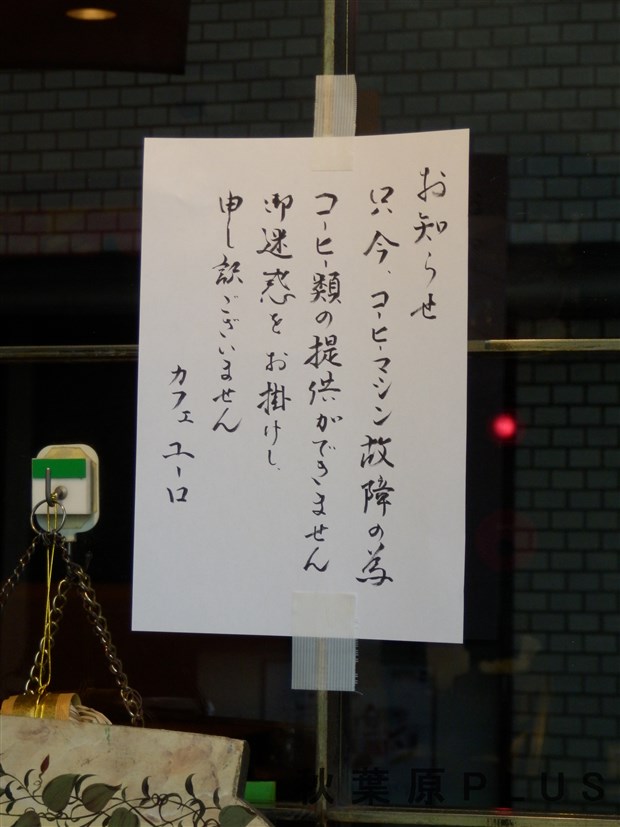 お知らせ
只今、コーヒーマシン故障の為
コーヒー類の提供ができません
御迷惑をお掛けし、
申し訳ございません
カフェ ユーロ
秋葉原PLUS